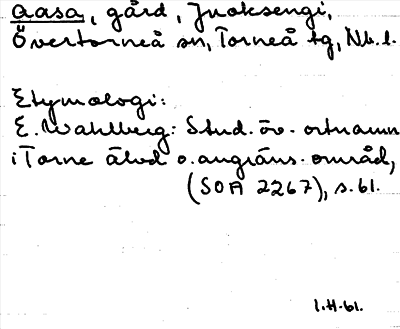 Aasa, gård, Juoksengi,
Övertorneå sn, Torneå tg, Nb. l.
Etymologi:
E. Wahlberg: Stud. öv. ortnamn
i Torne älvd o. angräns. områd,
(SOA 2267), s. 61.
1.H.61.